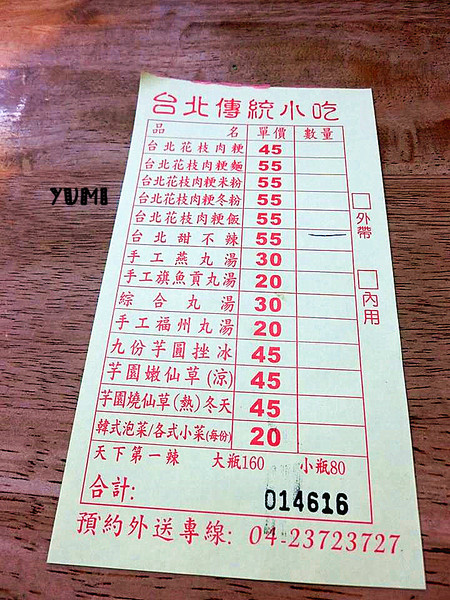 台北傳統小吃
品名 單價 數量
台北花枝肉粳 45
台北花枝肉粳麵 55
台北花枝肉粳米粉 55
台北花枝肉粳冬粉 55
台北花枝肉粳飯 55
台北甜不辣 55 一
手工燕丸湯 30
手工旗魚貢丸湯 20
綜合丸湯 30
手工福州丸湯 20
九份芋圓挫冰 45
芋園嫩仙草(涼) 45
芋園燒仙草(熱)冬天 45
韓式泡菜/各式小菜(每份) 20
天下第一辣 大瓶160 小瓶80
合計: 014616
預約外送專線: 04-23723727
□外帶
□內用
YUMI